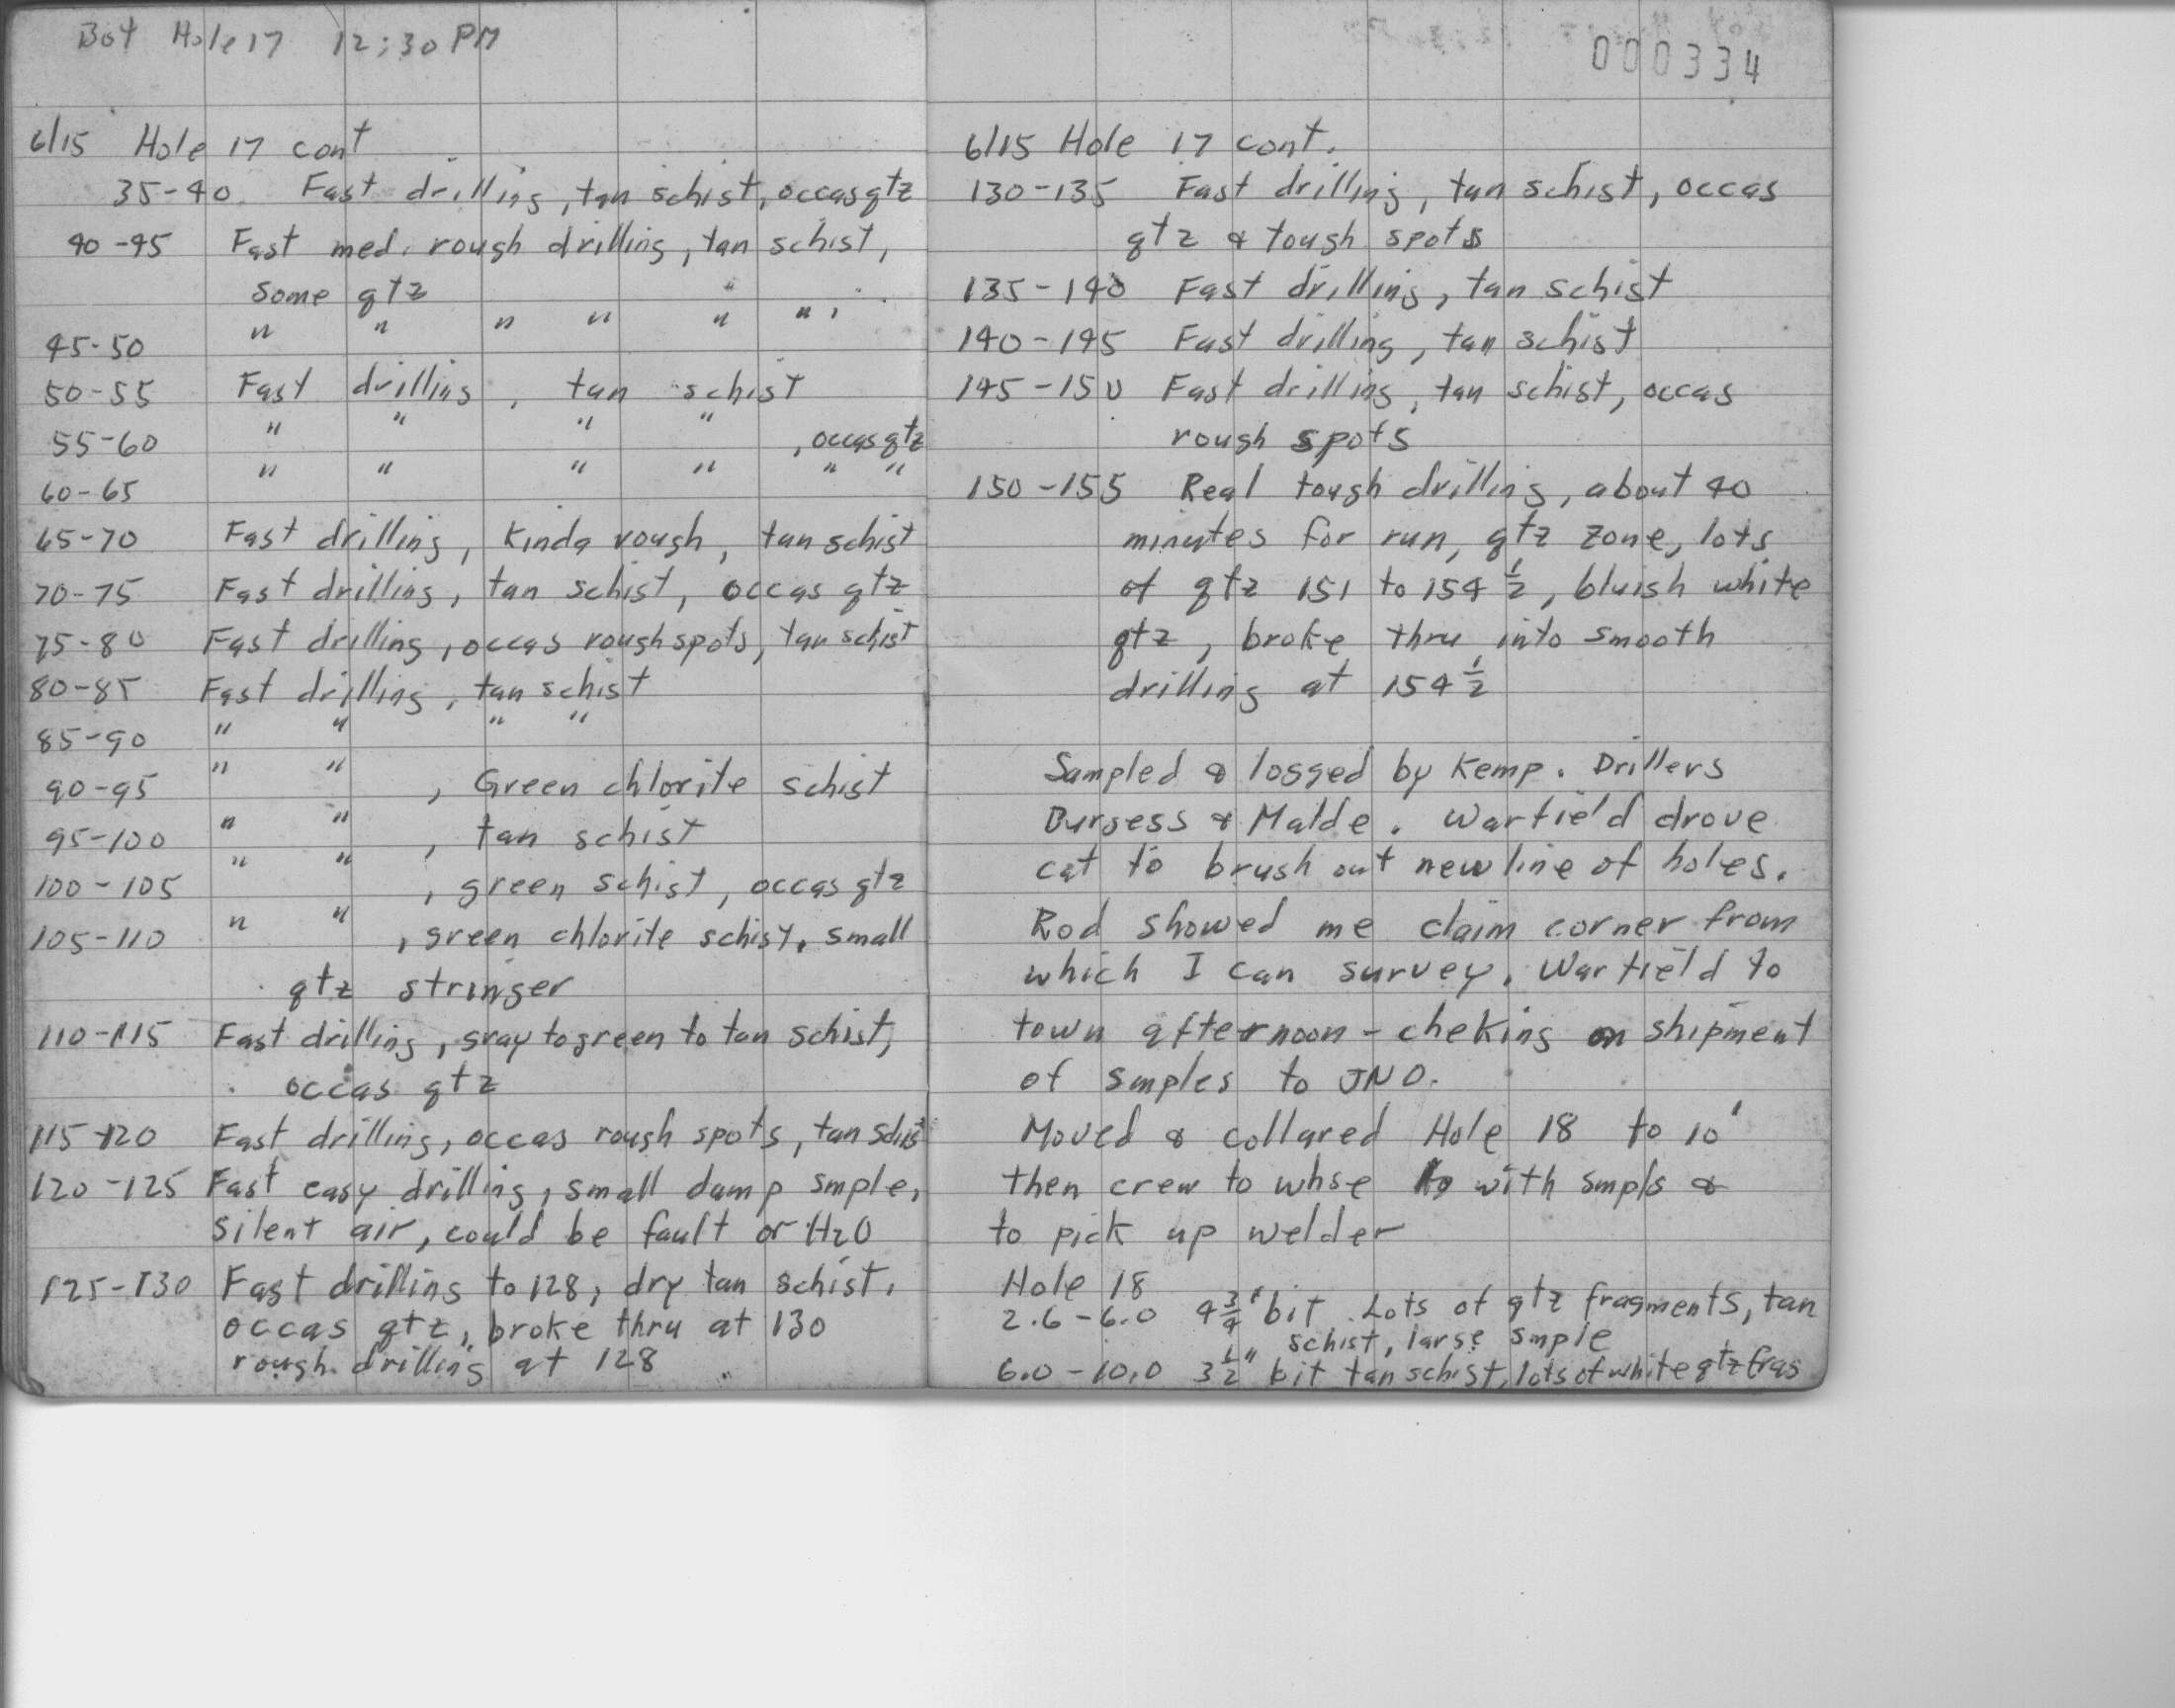 Bot Hole 17 12:30 PM
6/15 Hole 17 cont
35-40 Fast drilling, tan schist, occas qtz
40-45 Fast med. rough drilling, tan schist,
some qtz
45-50 " " " " " "
50-55 Fast drilling, tan schist
55-60 " " " ", occas qtz
60-65 " " " " " "
65-70 Fast drilling, Kinda rough, tan schist
70-75 Fast drilling, tan schist, occas qtz
75-80 Fast drilling, occas rough spots, tan schist
80-85 Fast drilling, tan schist
85-90 " " " "
90-95 " ", Green chlorite schist
95-100 " ", tan schist
100-105 " ", green schist, occas qtz
105-110 " ", green chlorite schist, small
qtz stringer
110-115 Fast drilling, gray to green to tan schist,
occas qtz
115-120 Fast drilling, occas rough spots, tan schist
120-125 Fast easy drilling, small damp smple,
silent air, could be fault or H2O
125-130 Fast drilling to 128, dry tan schist,
occas qtz, broke thru at 130
rough drilling at 128
000334
6/15 Hole 17 cont.
130-135 Fast drilling, tan schist, occas
qtz & tough spots
135-140 Fast drilling, tan schist
140-145 Fast drilling, tan schist
145-150 Fast drilling, tan schist, occas
rough spots
150-155 Real tough drilling, about 40
minutes for run, qtz zone, lots
of qtz 151 to 154 1/2, bluish white
qtz, broke thru into smooth
drilling at 154 1/2
Sampled & logged by Kemp. Drillers
Burgess & Malde. Warfield drove
cat to brush out new line of holes.
Rod showed me claim corner from
which I can survey. Warfield to
town afternoon - cheking on shipment
of smples to JNO.
Moved & collared Hole 18 to 10'
then crew to whse with smpls &
to pick up welder
Hole 18
2.6-6.0 4 3/4" bit. Lots of qtz fragments, tan
schist, large smple
6.0-10.0 3 1/2" bit tan schist, lots of white qtz frags